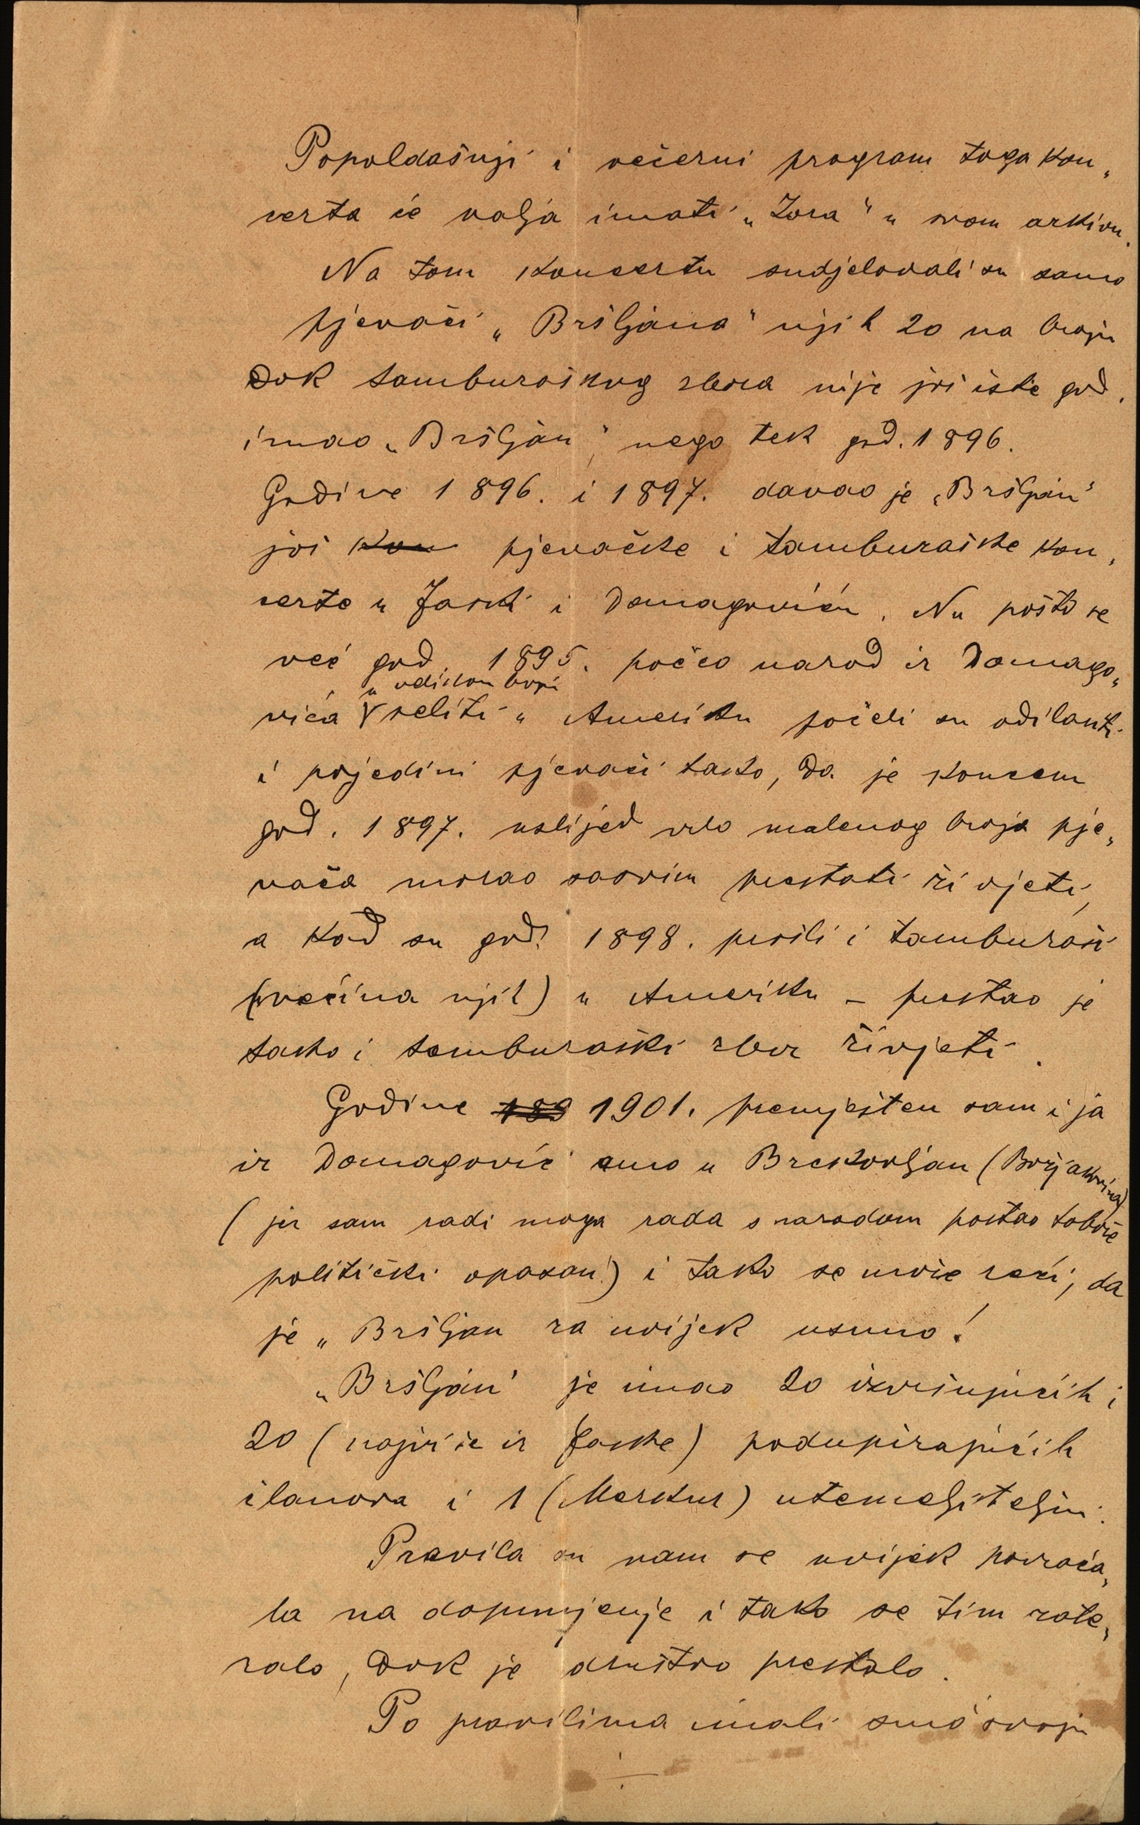 Popoldašnji i večerni program toga kon„
certa će valja imati „Zora“ u svom arkivu.
Na tom koncertu sudjelovali su samo
pjevači „Bršljana“ njih 20 na broju
dok tamburaškog zbora nije još iste god.
imao „Bršljan“, nego tek god. 1896.
Godine 1896. i 1897. davao je „Bršljan“
još kon pjevačke i tamburaške kon„
certe u Jaski i Domagoviću. No pošto se
već god. 1895. počeo narod iz Domago„
u velikom broju
vića seliti u Ameriku počeli su odilaziti
i pojedini pjevači tako, da je koncem
god. 1897. uslijed vrlo malenog broja pje„
vača morao sasvim prestati živjeti,
a kad su god. 1898. prošli i tamburaši
(većina njih) u Ameriku – prestao je
tako i tamburaški zbor živjeti.
Godine 189 1901. premješten sam i ja
iz Domagović amo u Brckovljan (Božjakovina)
(jer sam radi moga rada s narodom postao tobože
politički opasan!) i tako se može reći, da
je „Bršljan za uvijek usnuo!
„Bršljan“ je imao 20 izvršujućih i
20 (najviše iz Jaske) podupirajućih
članova i 1 (Merkur) utemeljitelju.
Pravila su nam se uvijek povraća„
la na dopunjenje i tako se tim zate„
zalo, dok je društvo prestalo.
Po pravilima imali smo svoju